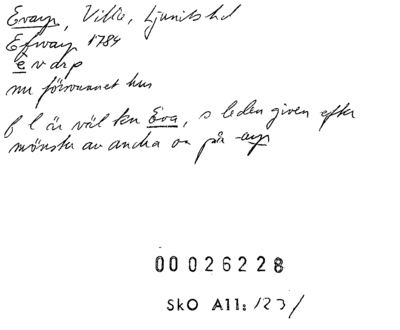 Evarp, Vitte, Ljunits hd
Efwarp 1784
e v a r p
nu försvunnet hus
f l är väl kn Eva, s leden given efter
mönster av andra on på -arp
00026228
SkO A11: 123/